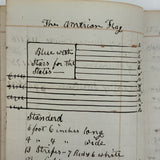 The American Flag
Blue with
Stars for the
States —
Standard
6 foot 6 inches long
4 " 4 " wide
13 Stripes - 7 Red & 6 white